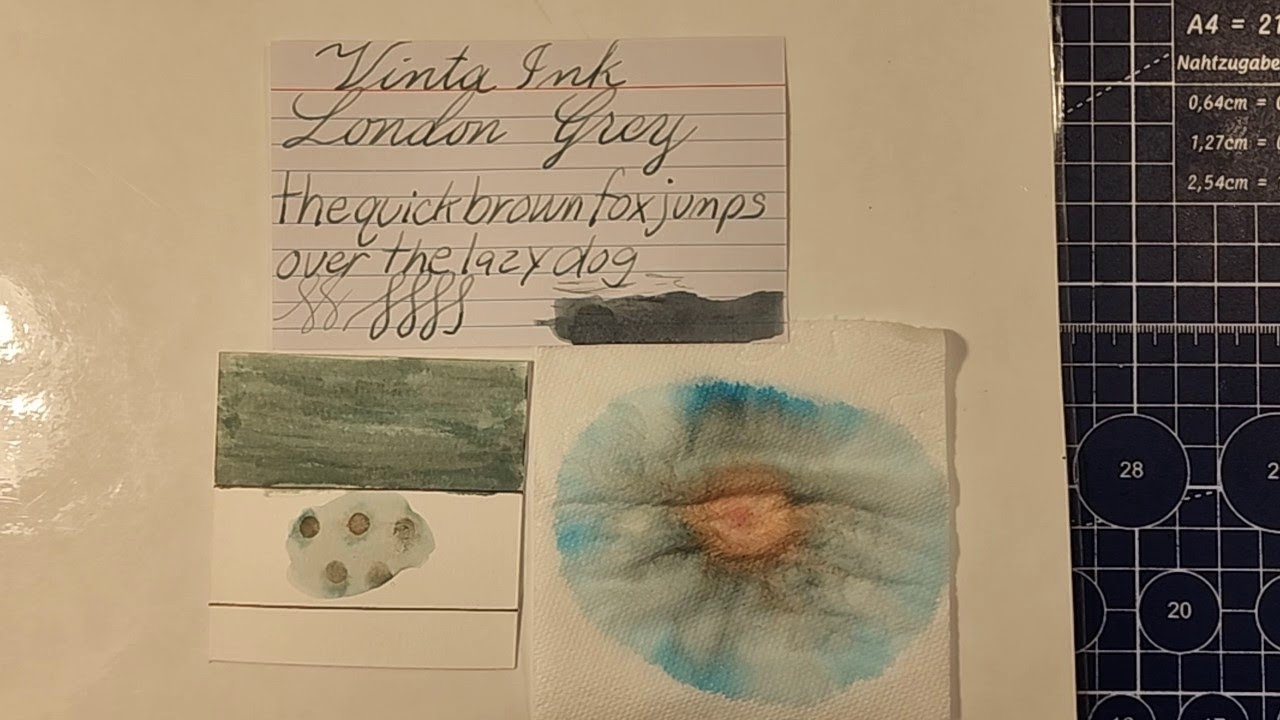 Vinta Ink
London Grey
thequickbrownfoxjumps
over the lazy dog
A4 = 21
Nahtzugabe
0,64cm =
1,27cm =
2,54cm =
28
2
20